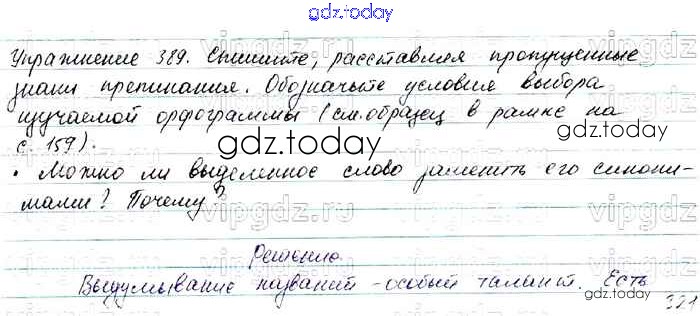 gdz.today
Упражнение 389. Спишите, расставляя пропущенные
знаки препинания. Обозначьте условия выбора
изучаемой орфограммы (см. образец в рамке на
с. 159).
gdz.today
gdz.today
• Можно ли выделенное слово заменить его синони-
мами? Почему?
gdz.today
Решение.
Выдумывание названий - особый талант. Есть
gdz.today
321